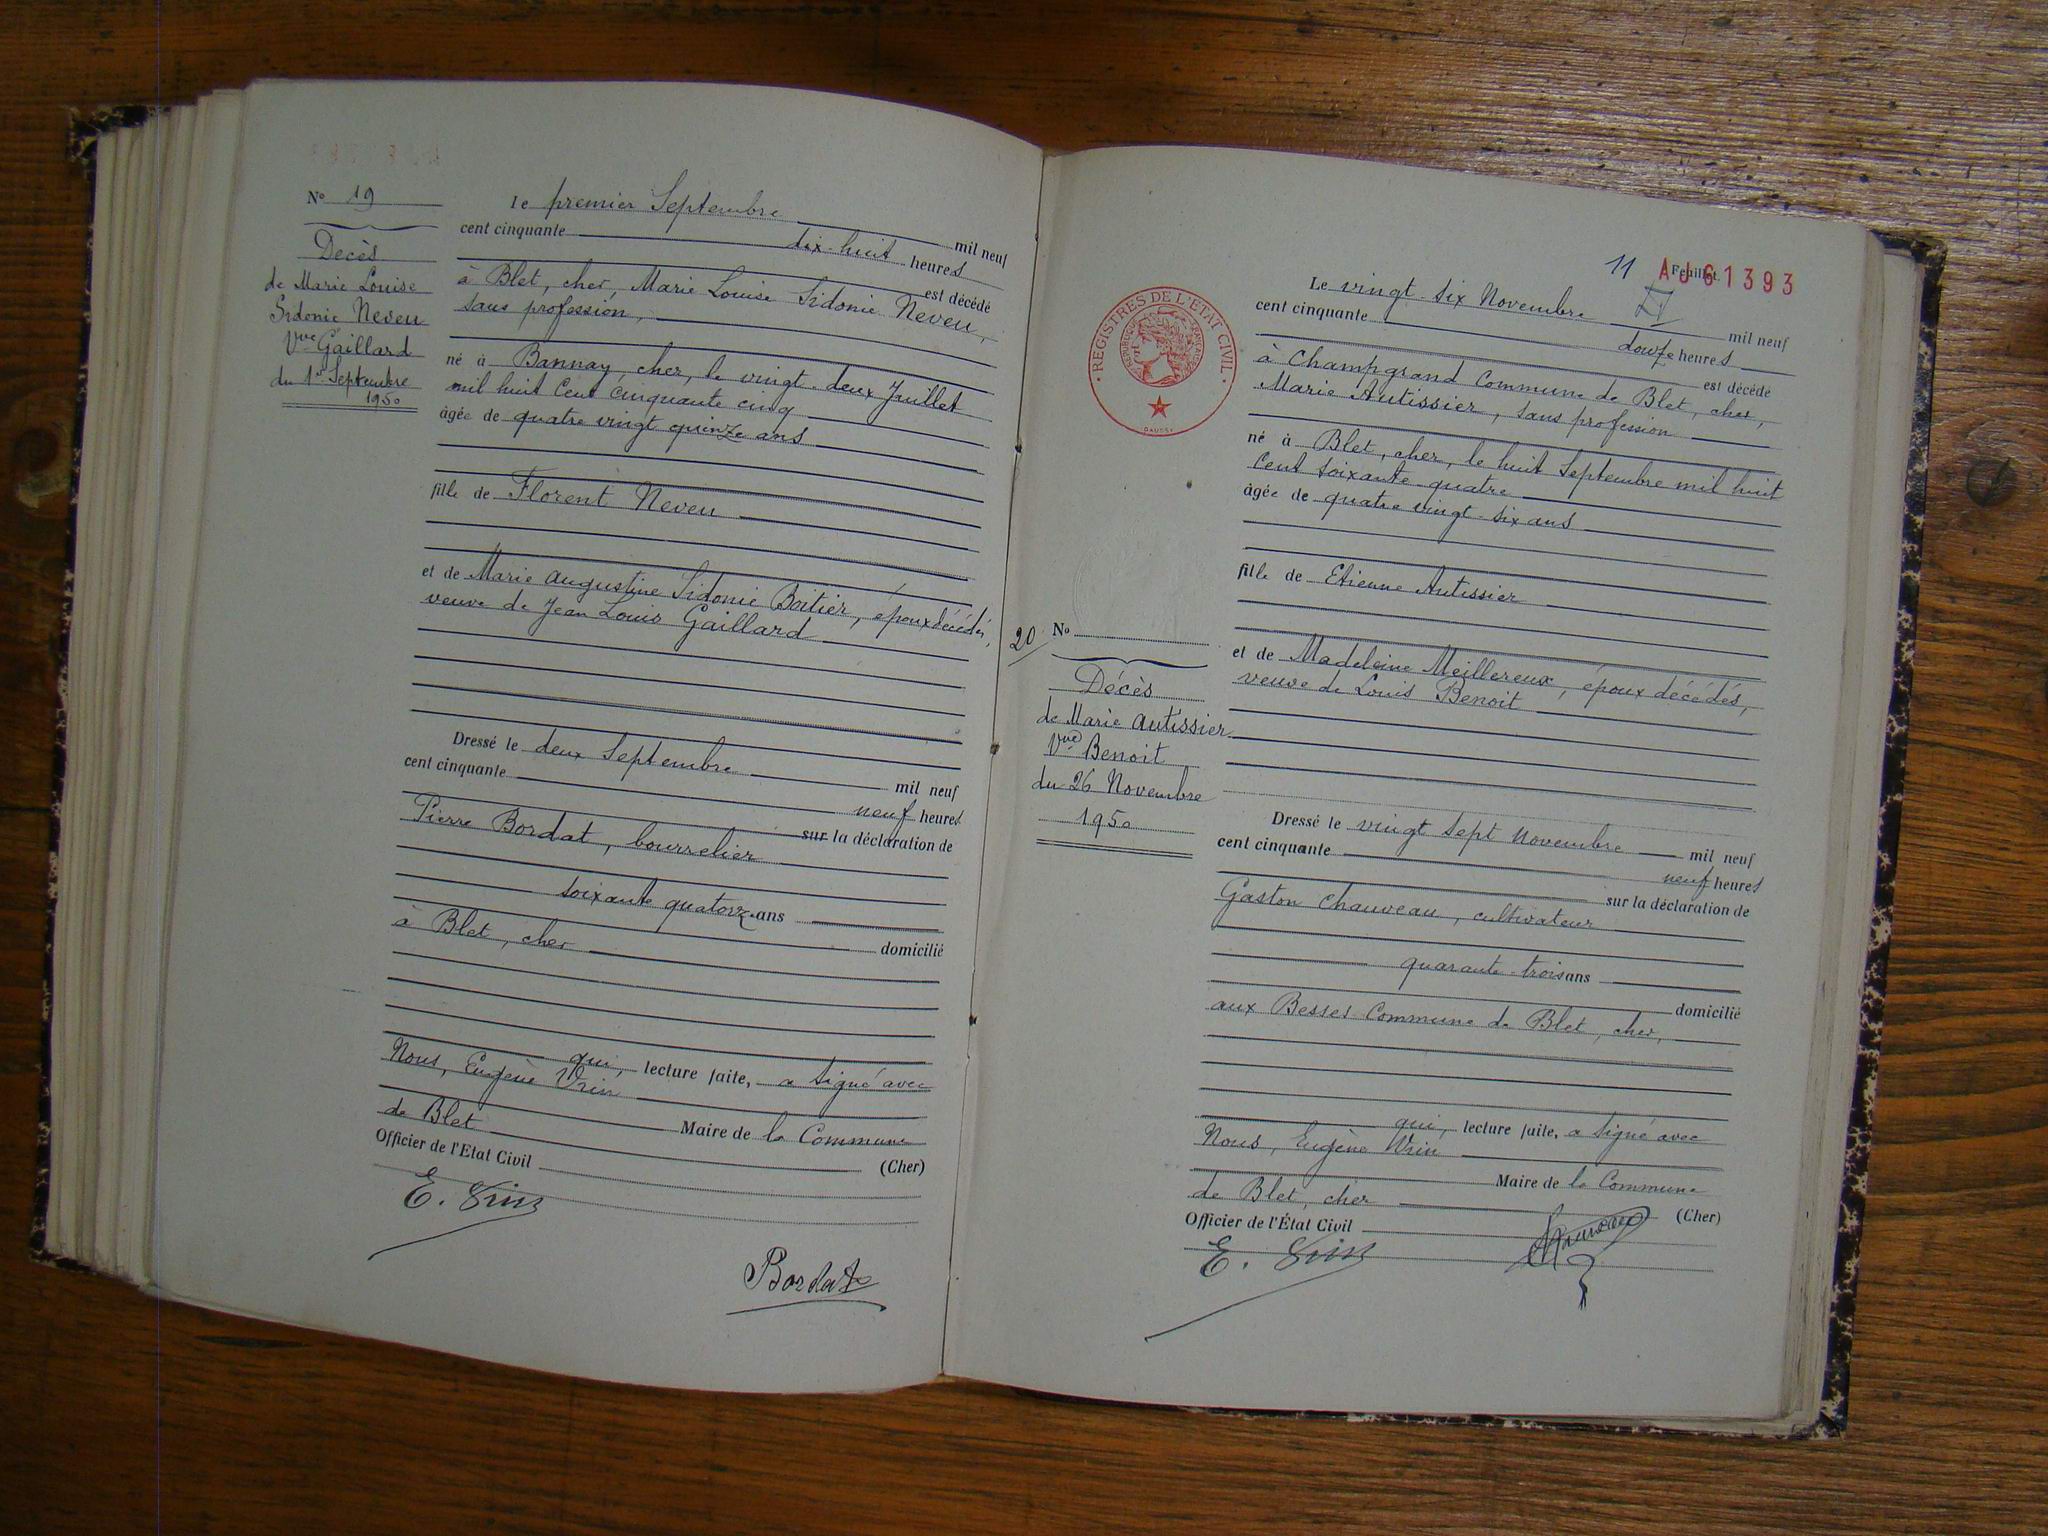 N° 19
Décès
de Marie Louise
Sidonie Neveu
Vve Gaillard
du 1er Septembre
1950
Le premier Septembre mil neuf
cent cinquante dix-huit heures
est décédé
à Blet, cher, Marie Louise Sidonie Neveu,
sans profession,
né à Bannay, cher, le vingt-deux Juillet
mil huit cent cinquante cinq
âgée de quatre vingt quinze ans
fille de Florent Neveu
et de Marie Augustine Sidonie Boitier, époux décédés,
veuve de Jean Louis Gaillard
Dressé le deux Septembre mil neuf
cent cinquante neuf heures
sur la déclaration de
Pierre Bordat, bourrelier
soixante quatorze ans
domicilié
à Blet, cher
qui, lecture faite, a signé avec
Nous, Eugène Vrin
Maire de la Commune
de Blet (Cher)
Officier de l'Etat Civil
E. Vrin
Bordat
11 Feuillet
AJ61393
REGISTRES DE L'ETAT CIVIL
N° 20
Décès
de Marie Autissier
Vve Benoit
du 26 Novembre
1950
Le vingt-six Novembre mil neuf
cent cinquante douze heures
est décédé
à Champgrand Commune de Blet, cher,
Marie Autissier, sans profession
né à Blet, cher, le huit Septembre mil huit
cent soixante-quatre
âgée de quatre vingt-six ans
fille de Etienne Autissier
et de Madeleine Meillereux, époux décédés,
veuve de Louis Benoit
Dressé le vingt sept Novembre mil neuf
cent cinquante neuf heures
sur la déclaration de
Gaston Chauveau, cultivateur
quarante-trois ans
domicilié
aux Besses Commune de Blet, cher,
qui, lecture faite, a signé avec
Nous, Eugène Vrin
Maire de la Commune
de Blet, cher (Cher)
Officier de l'État Civil
E. Vrin
Chauveau